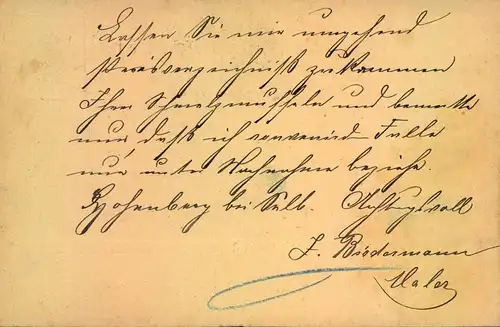 Lassen Sie mir umgehend
Preisverzeichniß zukommen
Ihrer Schmelzmuffeln und bemerke
nur daß ich convenird. Falle
nur unter Nachnahme beziehe.
Hohenberg bei Selb. Achtungsvoll
J. Biedermann
Maler